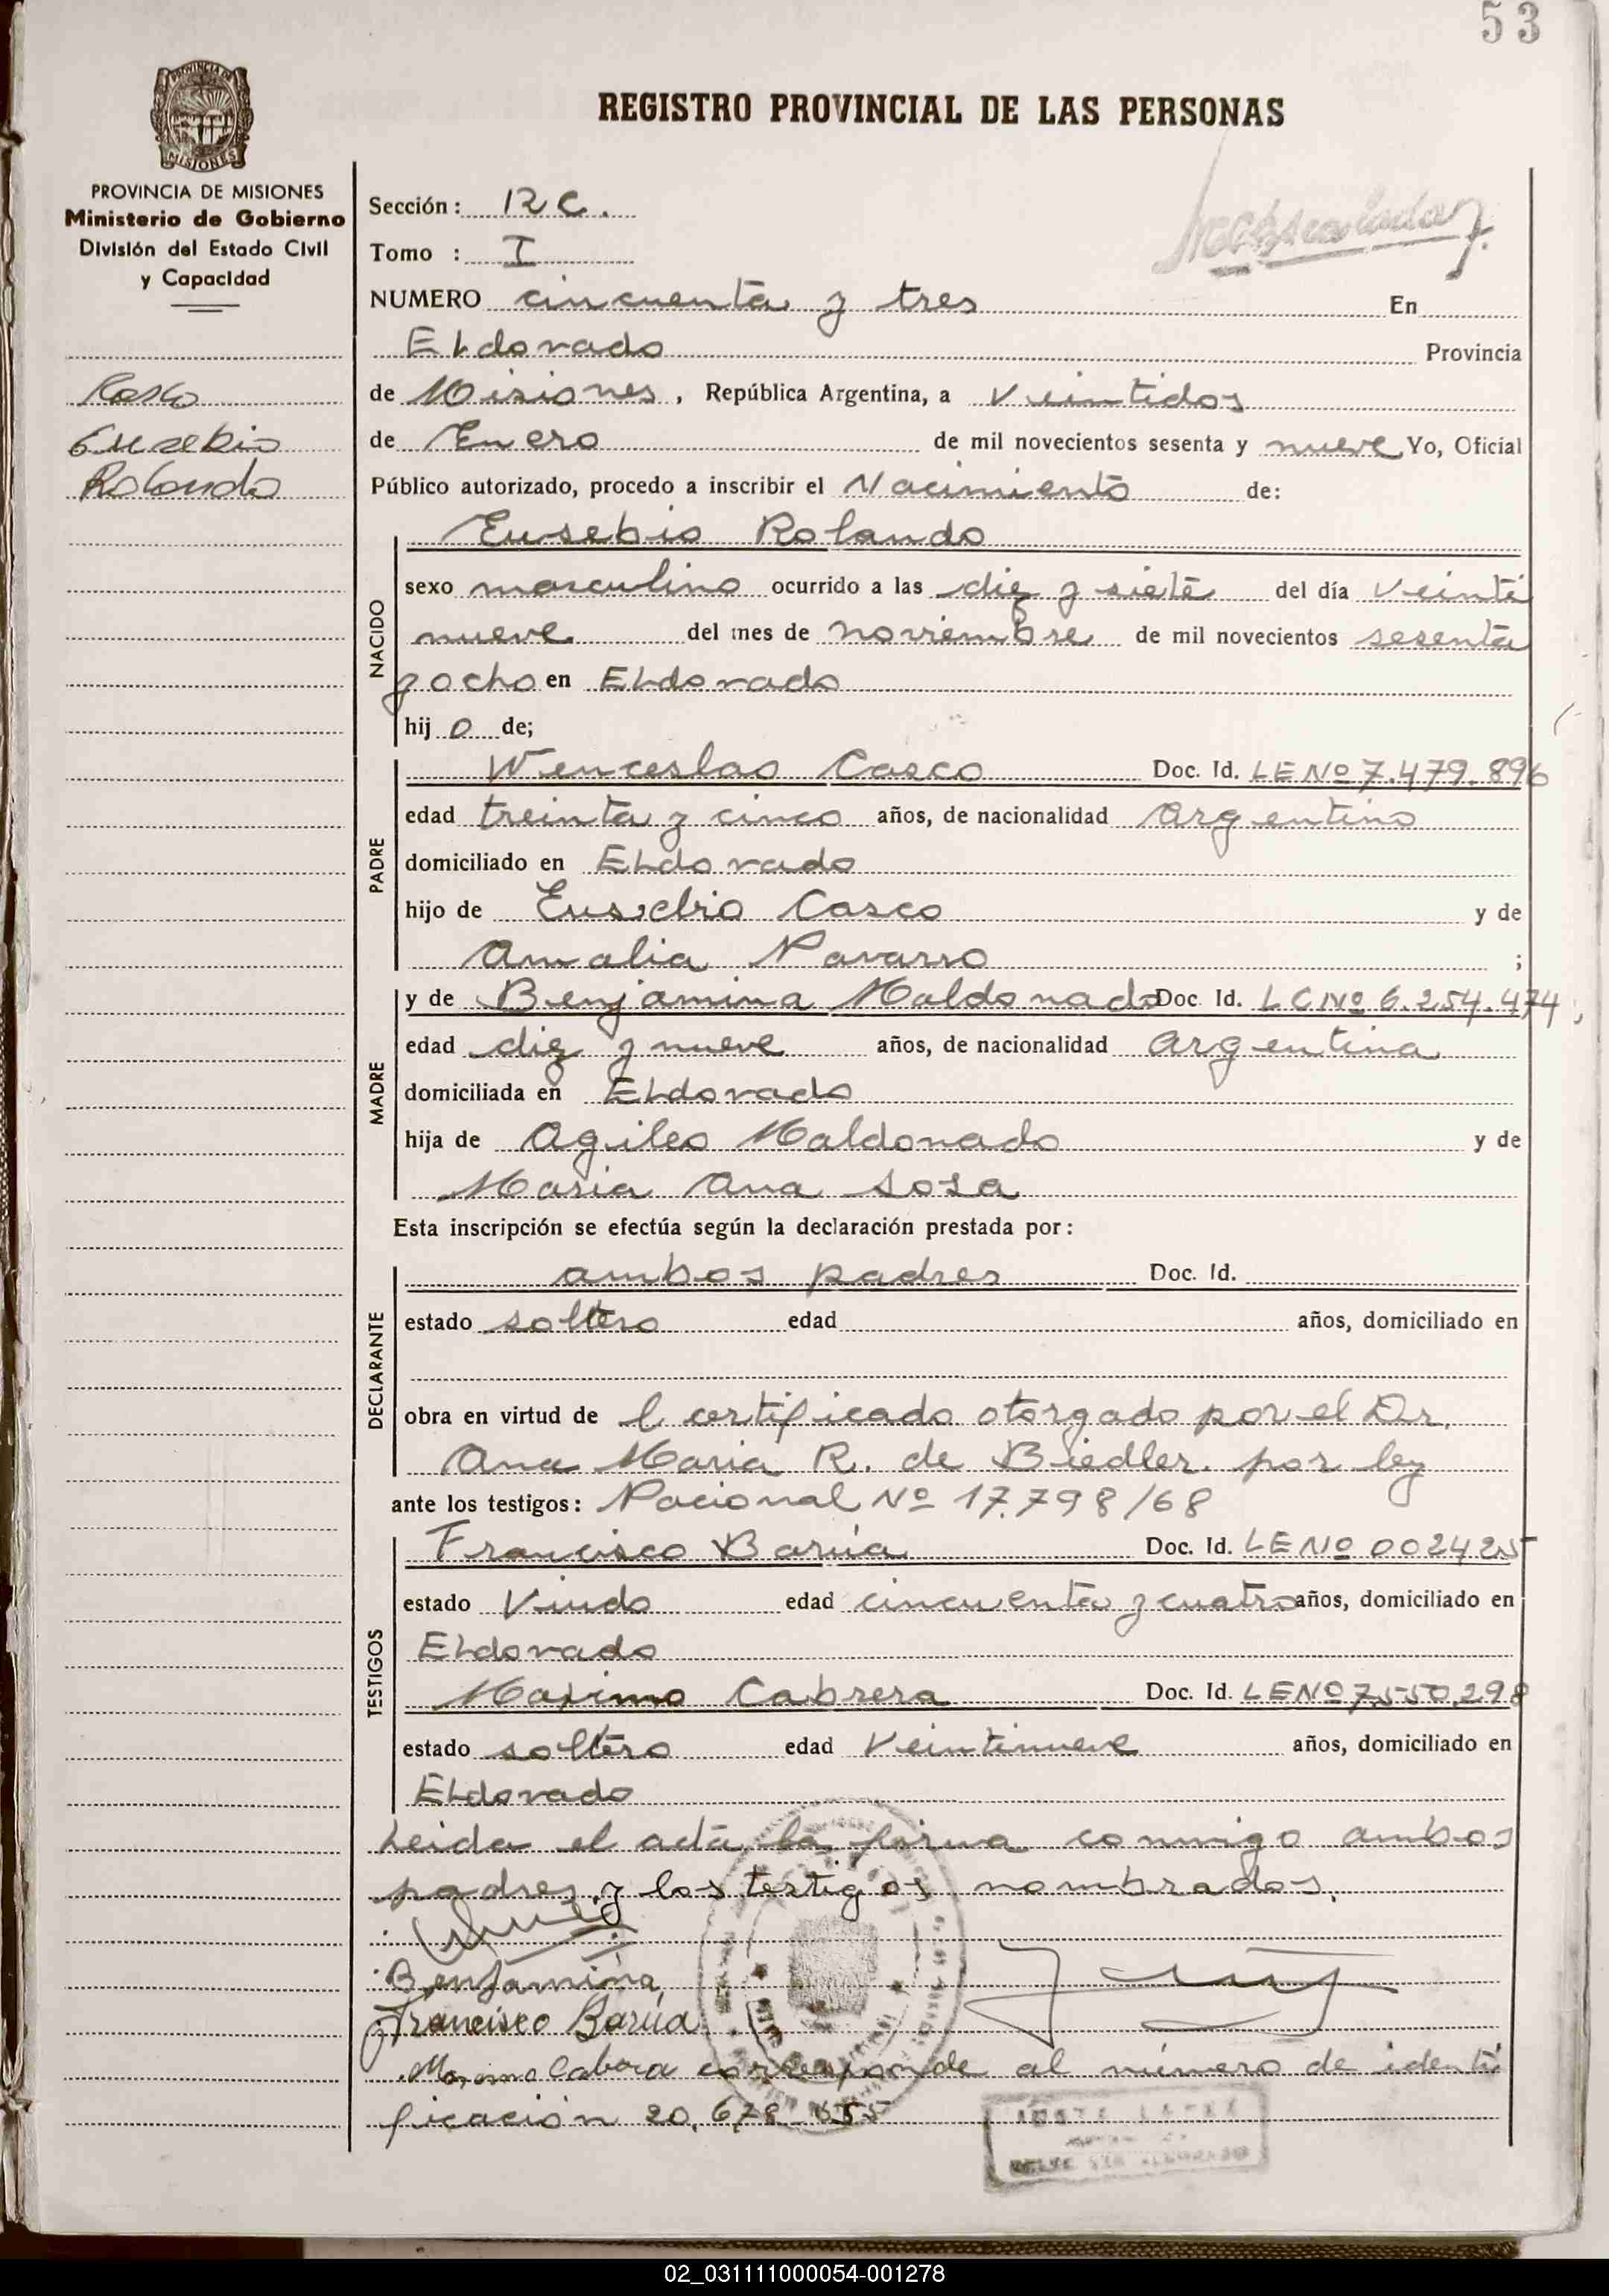 53
PROVINCIA DE
MISIONES
REGISTRO PROVINCIAL DE LAS PERSONAS
PROVINCIA DE MISIONES
Ministerio de Gobierno
División del Estado Civil
y Capacidad
Casco
Eusebio
Rolando
Sección: 12 C.
Tomo : I
NUMERO cincuenta y tres En
Eldorado Provincia
de Misiones, República Argentina, a Veintidos
de Enero de mil novecientos sesenta y nueve Yo, Oficial
Público autorizado, procedo a inscribir el Nacimiento de:
NACIDO
Eusebio Rolando
sexo masculino ocurrido a las diez y siete del día Veinti
nueve del mes de noviembre de mil novecientos sesenta
y ocho en Eldorado
hij o de;
PADRE
Wenceslao Casco Doc. Id. LE Nº 7.479.896
edad treinta y cinco años, de nacionalidad Argentino
domiciliado en Eldorado
hijo de Eusebio Casco y de
Amalia Navarro ;
MADRE
y de Benjamina Maldonado Doc. Id. LC Nº 6.254.474,
edad diez y nueve años, de nacionalidad Argentina
domiciliada en Eldorado
hija de Agileo Maldonado y de
Maria Ana Sosa
Esta inscripción se efectúa según la declaración prestada por:
DECLARANTE
ambos padres Doc. Id.
estado soltero edad años, domiciliado en
obra en virtud de l certificado otorgado por el Dr.
Ana Maria R. de Biedler. por ley
ante los testigos: Nacional Nº 17.798/68
TESTIGOS
Francisco Barúa Doc. Id. LE Nº 002425
estado Viudo edad cincuenta y cuatro años, domiciliado en
Eldorado
Maximo Cabrera Doc. Id. LE Nº 7.550.298
estado soltero edad Veintinueve años, domiciliado en
Eldorado
Leida el acta la firma conmigo ambos
padres y los testigos nombrados.
Benjamina
Francisco Barúa
Maximo Cabrera corresponde al número de identi
ficación 20.678.655
02_031111000054-001278